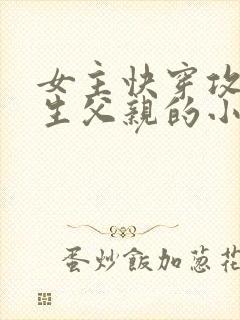 女主快穿攻
生父親的小
蛋炒飯加蔥花